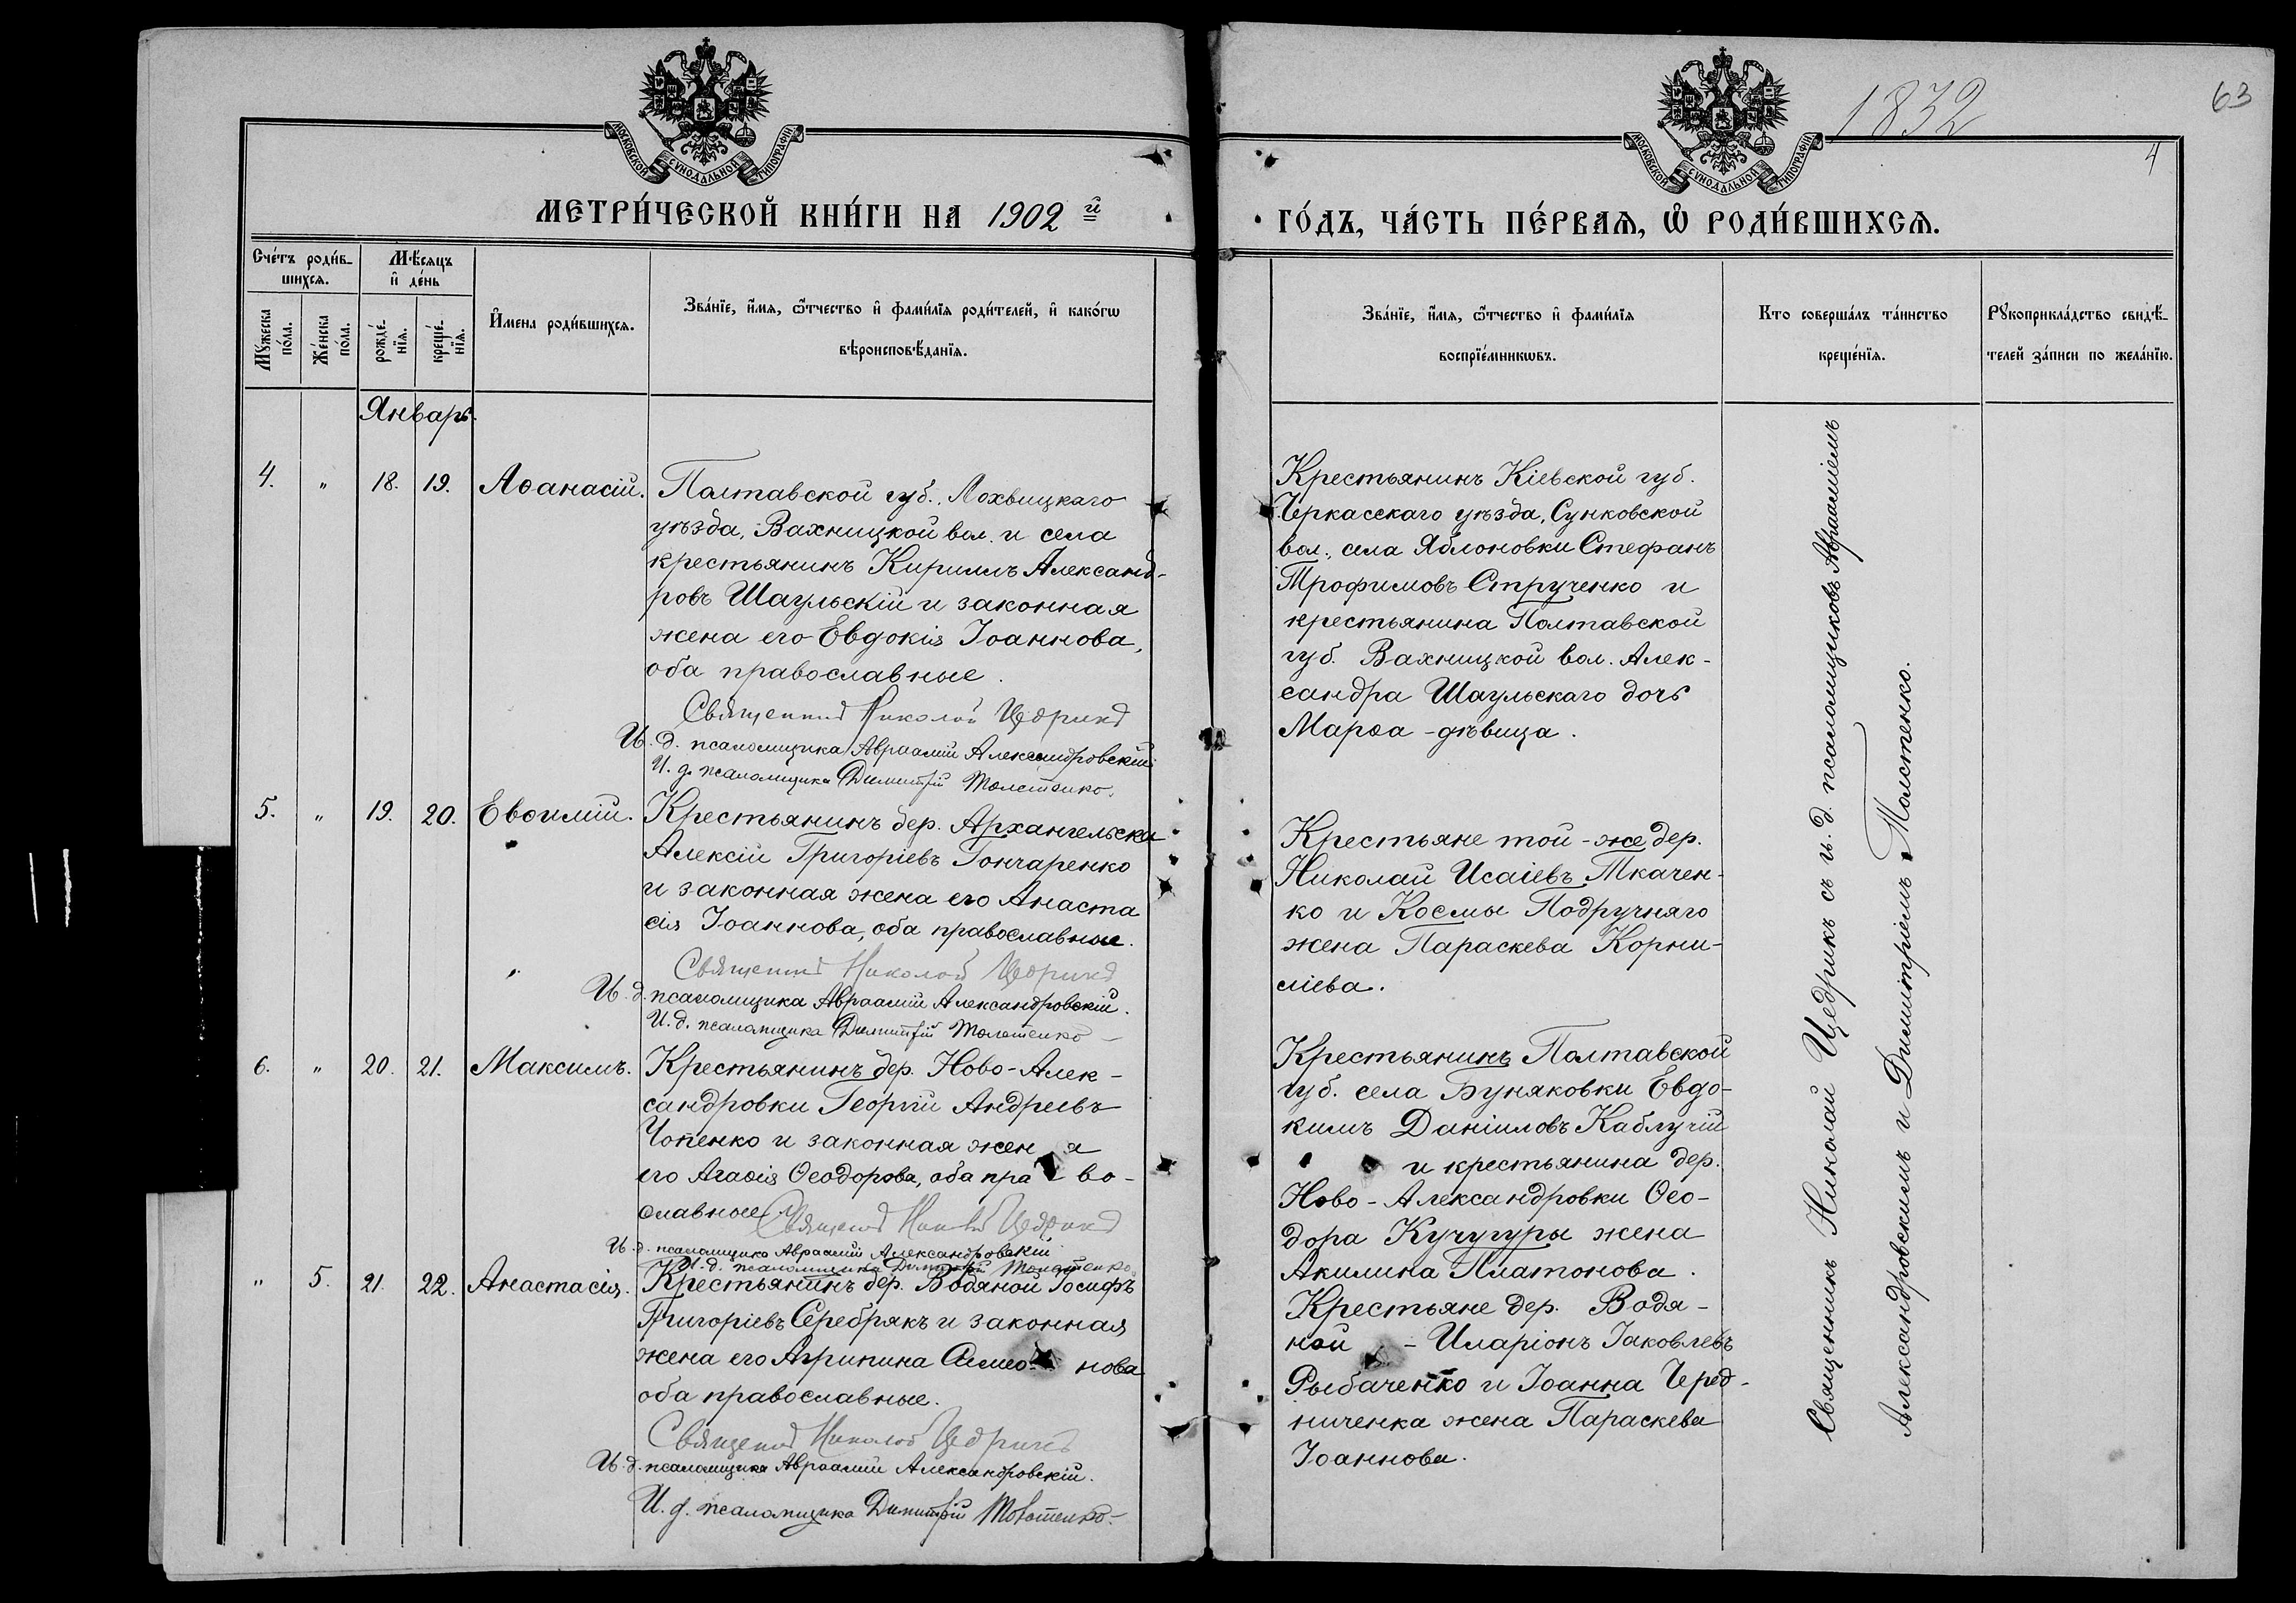 1832
63
4
МОСКОВСКОЙ СУНОДАЛЬНОЙ ТИПОГРАФІИ
МОСКОВСКОЙ СУНОДАЛЬНОЙ ТИПОГРАФІИ
МЕТРИ́ЧЕСКОЙ КНИ́ГИ НА 1902 й
ГО́ДЪ, ЧА́СТЬ ПЕ́РВАѦ, Ѡ҆ РОДИ́ВШИХСѦ.
Сче́тъ роди́в-
шихсѧ.
Мꙋ́жеска
по́ла.
Же́нска
по́ла.
Мѣ́сѧцъ
и҆ де́нь
рожде́-
нїѧ.
креще́-
нїѧ.
И҆мена роди́вшихсѧ.
Зва́нїе, и҆́мѧ, ѻ҆́тчество и҆ фами́лїѧ роди́телей, и҆ како́гѡ
вѣроисповѣ́данїѧ.
Зва́нїе, и҆́мѧ, ѻ҆́тчество и҆ фами́лїѧ
воспрїе́мникѡвъ.
Кто соверша́лъ та́инство
креще́нїѧ.
Рꙋкоприкла́дство свидѣ́-
телей за́писи по жела́нїю.
Январь.
4. " 18. 19. Аѳанасій.
Полтавской губ. Лохвицкаго
уѣзда, Вахницкой вол. и села
крестьянинъ Кириллъ Александ-
ровъ Шаульскій и законная
жена его Евдокія Іоаннова,
оба православные.
Священник Николай Цедрик
И. д. псаломщика Авраамій Александровскій
И. д. псаломщика Димитрій Толстенко.
Крестьянинъ Кіевской губ.
Черкасскаго уѣзда, Сунковской
вол., села Яблоновки Стефанъ
Трофимовъ Струченко и
крестьянина Полтавской
губ. Вахницкой вол. Алек-
сандра Шаульскаго дочь
Марѳа - дѣвица.
5. " 19. 20. Евѳимій.
Крестьянинъ дер. Архангельска
Алексій Григоріевъ Гончаренко
и законная жена его Анаста
сія Іоаннова, оба православные.
Священник Николай Цедрик
И. д. псаломщика Авраамій Александровскій.
И. д. псаломщика Димитрій Толстенко
Крестьяне той-же дер.
Николай Исаіевъ Ткачен-
ко и Космы Подручняго
жена Параскева Корни-
ліева.
6. " 20. 21. Максимъ.
Крестьянинъ дер. Ново-Алек-
сандровки Георгій Андреевъ
Чопенко и законная жен а
его Агаѳія Ѳеодорова, оба пра во-
славные.
Священик Николай Цедрик
И. д. псаломщика Авраамій Александровскій
И. д. псаломщика Димитрій Толстенко.
Крестьянинъ Полтавской
губ. села Буняковки Евдо-
кимъ Даніиловъ Каблучій
и крестьянина дер.
Ново-Александровки Ѳео-
дора Кучугуры жена
Акилина Платонова.
" 5. 21. 22. Анастасія.
Крестьянинъ дер. Водяной Іосифъ
Григоріевъ Серебрякъ и законная
жена его Агрипина Симео нова
оба православные.
Священик Николай Цедрикъ
И. д. псаломщика Авраамій Александровскій.
И. д. псаломщика Димитрій Толстенко.
Крестьяне дер. Водя-
ной - Иларіонъ Іаковлевъ
Рыбаченко и Іоанна Черед-
ниченка жена Параскева
Іоаннова.
Священникъ Николай Цедрикъ съ и. д. псаломщиковъ Авраміемъ
Александровскимъ и Димитріемъ Толстенко.